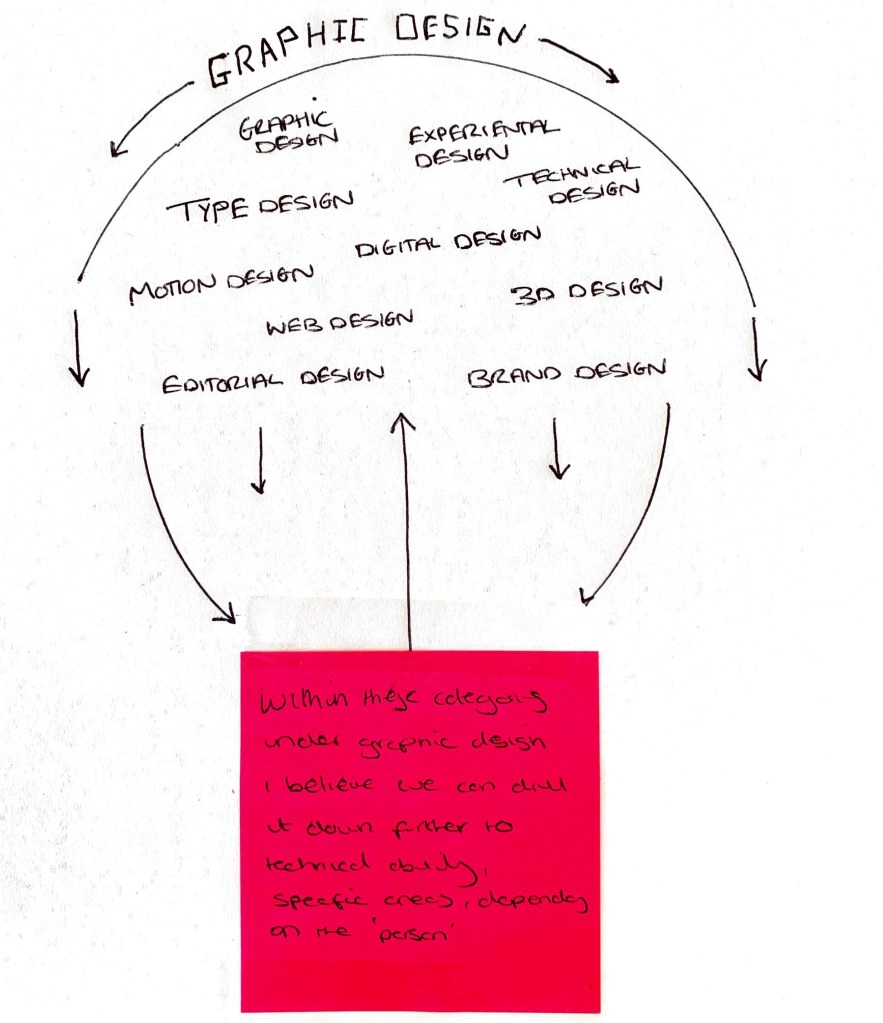 GRAPHIC DESIGN
GRAPHIC
DESIGN
EXPERIENTAL
DESIGN
TECHNICAL
DESIGN
TYPE DESIGN
DIGITAL DESIGN
MOTION DESIGN
3D DESIGN
WEB DESIGN
EDITORIAL DESIGN
BRAND DESIGN
Within these
under graphic design
I believe we can drill
it down further to
technical ability,
specific areas, depending
on the 'person'